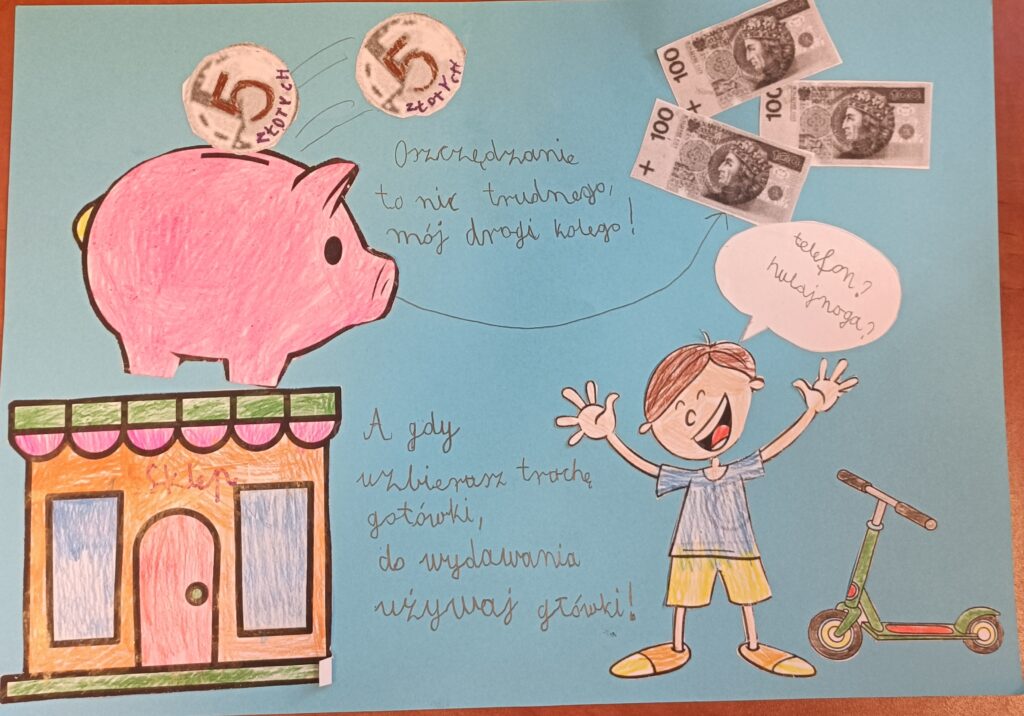 5
ZŁOTYCH
5
ZŁOTYCH
100
100
+ 100
Oszczędzanie
to nic trudnego,
mój drogi kolego!
telefon?
hulajnoga?
Sklep
A gdy
uzbierasz trochę
gotówki,
do wydawania
używaj główki!